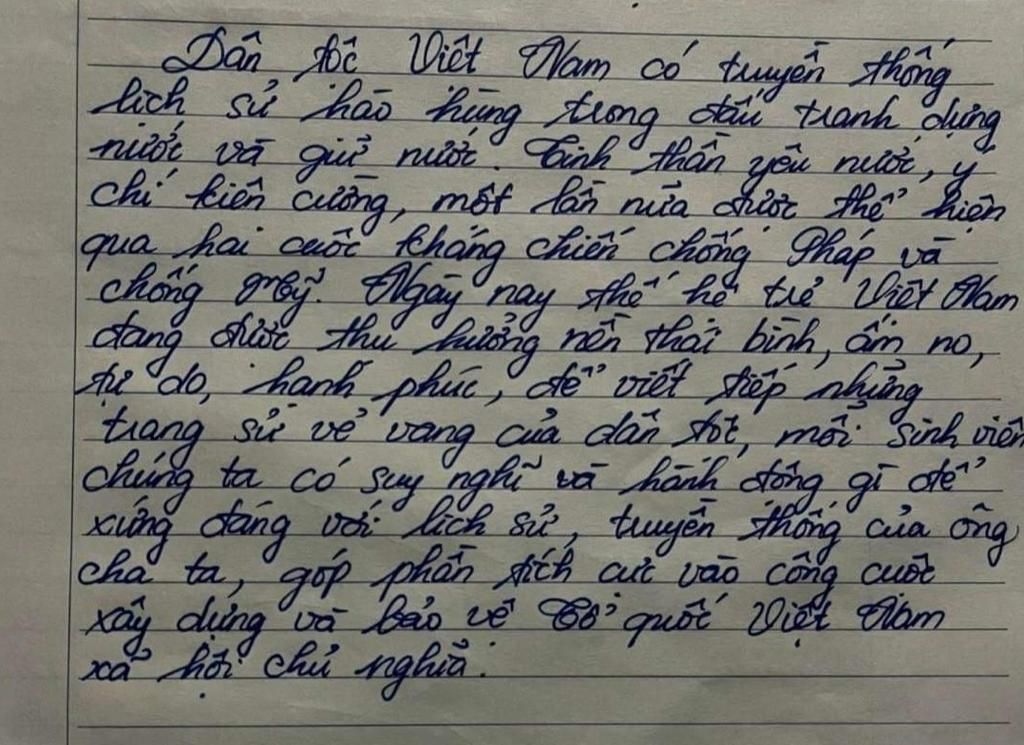 Dân tộc Việt Nam có truyền thống
lịch sử hào hùng trong đấu tranh dựng
nước và giữ nước. Tinh thần yêu nước, ý
chí kiên cường, một lần nữa được thể hiện
qua hai cuộc kháng chiến chống Pháp và
chống Mỹ. Ngày nay thế hệ trẻ Việt Nam
đang được thu hưởng nền thái bình, ấm no,
tự do, hạnh phúc, để viết tiếp những
trang sử vẻ vang của dân tột, mỗi sinh viên
chúng ta có suy nghĩ và hành động gì để
xứng đáng với lịch sử, truyền thống của ông
cha ta, góp phần tích cực vào công cuộc
xây dựng và bảo vệ Tổ quốc Việt Nam
xã hội chủ nghĩa.